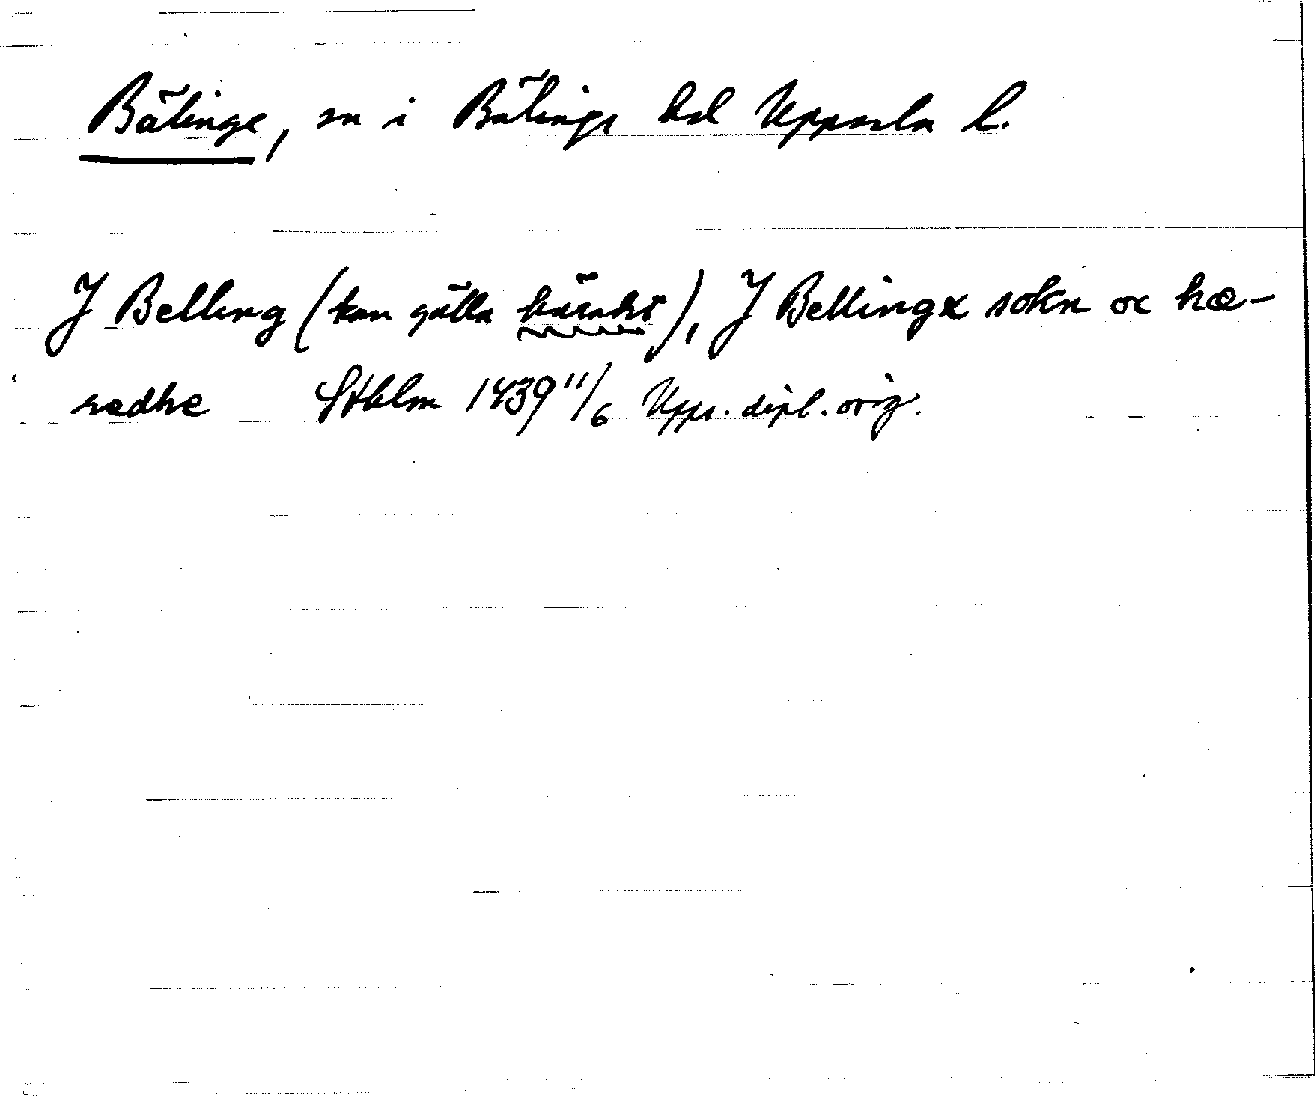 Bälinge, sn i Bälinge hd Uppsala l.
J Belling (kan gälla häradet), J Bellinge sokn oc hæ-
redhe Sthlm 1439 11/6 Upps. dipl. orig.